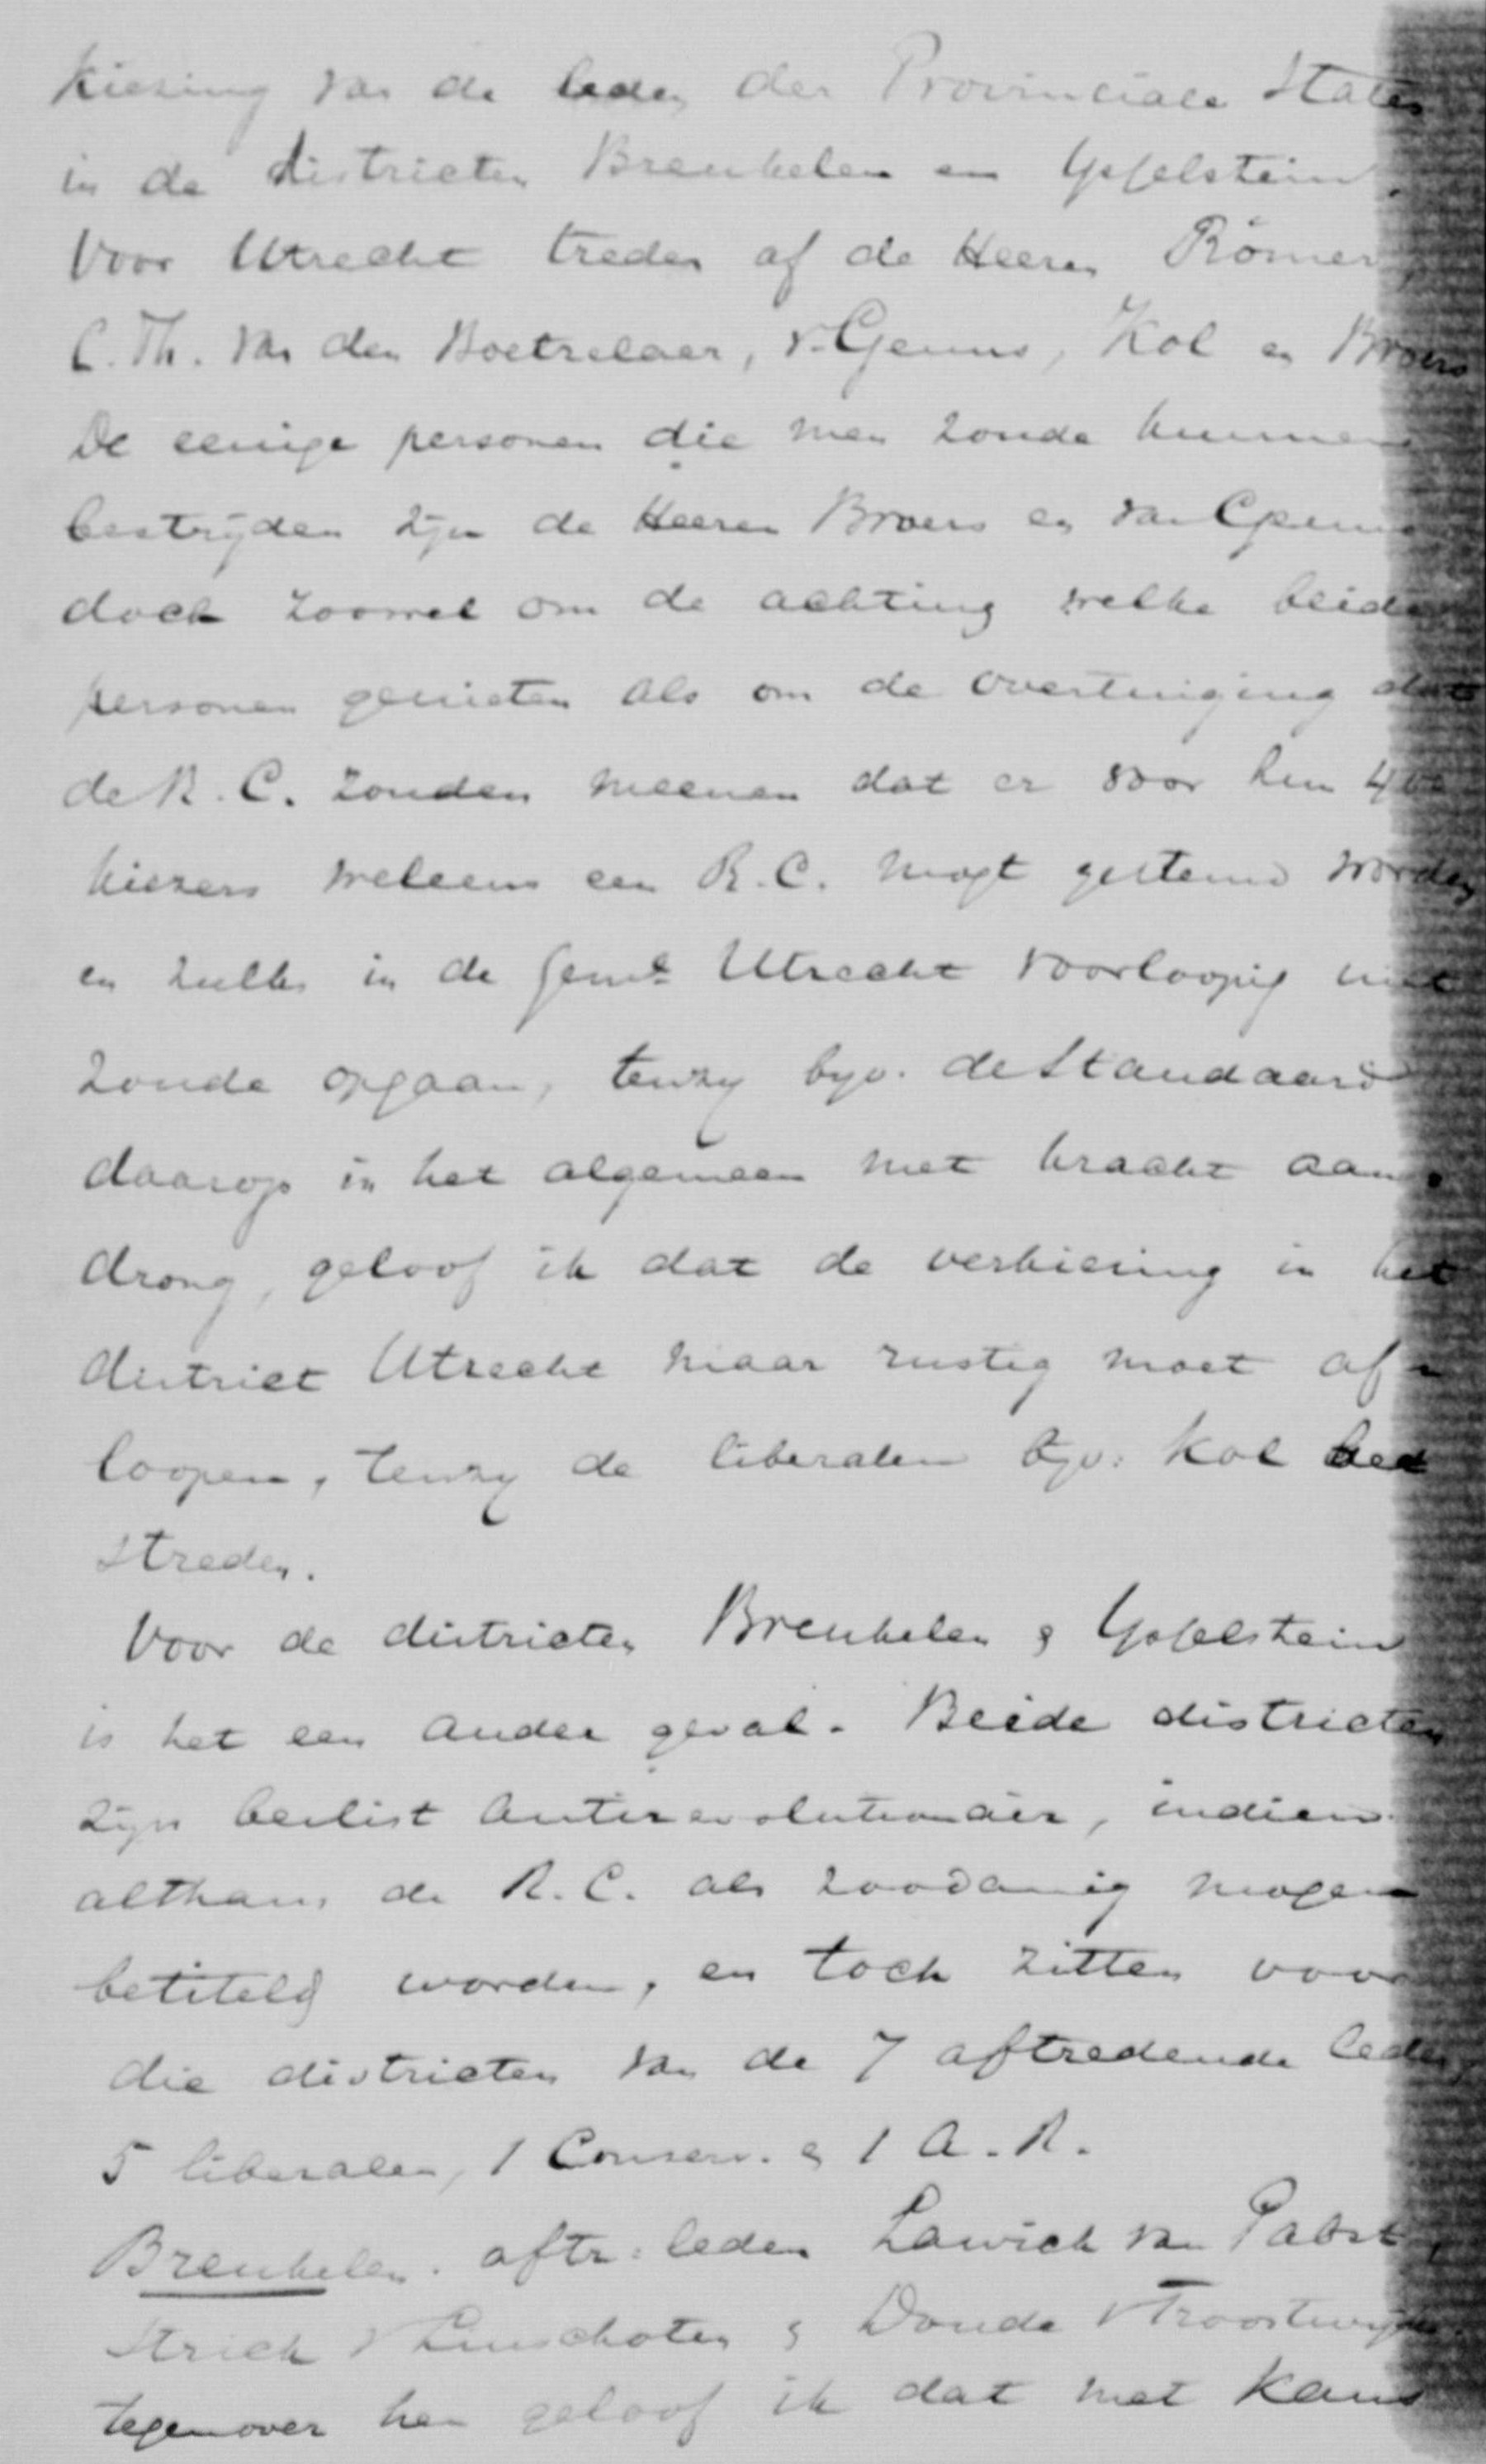 kiezing van de leden der Provinciale Staten
in de districten Breukelen en Ysselstein.
Voor Utrecht treden af de Heeren Römer,
C. Th. van den Boetzelaer, v. Genns, Kol en Broers
De eenige personen die men zoude kunnen
bestrijden zijn de Heeren Broers en van
doch zoowel om de achting welke beide
personen genieten als om de overtuiging dat
de R. C. zouden meenen dat er voor hun
kiezers weleens een R. C. mogt gestemd worden
en zulks in de Gemte Utrecht voorloopig niet
zoude opgaan, tenzy byv. de Standaard
daarop in het algemeen met kracht aan-
drong, geloof ik dat de verkiezing in het
district Utrecht maar rustig moet af-
loopen, tenzy de liberalen byv. Kol
streden.
Voor de districten Breukelen & Ysselstein
is het een ander geval. Beide districten
zijn beslist Antirevolutionair, indien
althans de R. C. als zoodanig mogen
betiteld worden, en toch zitten voor
die districten van de 7 aftredende leden,
5 liberalen, 1 Conserv. & 1 A. R.
Breukelen. aftr. leden Lawick van Pabst,
Strick v Linschoten & Doude v Troostwijk.
tegenover hen geloof ik dat met kans